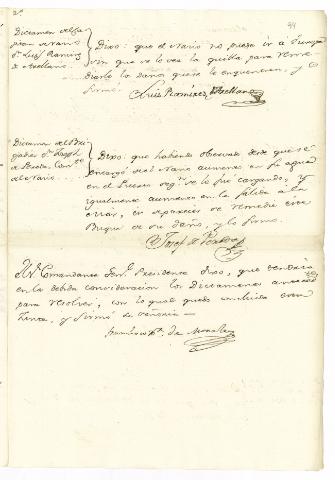 2ª
44
Dictamen del Ca
pitan de Navio
Dn. Luis Ramirez
de Arellano.
Dixo: que el Navio no puede ir a Europa
sin que se le vea la quilla para reme
diarle los daños que se le encuentran, y lo
firmó.
Luis Ramirez de Arellano
Dictamen del Bri
gadier Dn. Joseph
de
del Navio.
Dixo: que habiendo observado desde que se
encargó del Navio aumento en su agua
en el Puerto segn. se le fué cargando, y
igualmente aumento en la salida a la
mar, es de parecer se remedie este
Buque de su daño, y lo firmó.
Josef de
El Sr. Comandante Genl. Presidente Dixo, que tendria
en la debida consideracion los Dictamenes
para resolver, con lo qual quedó concluida esta
Junta, y firmó de Señoria =
de Morales